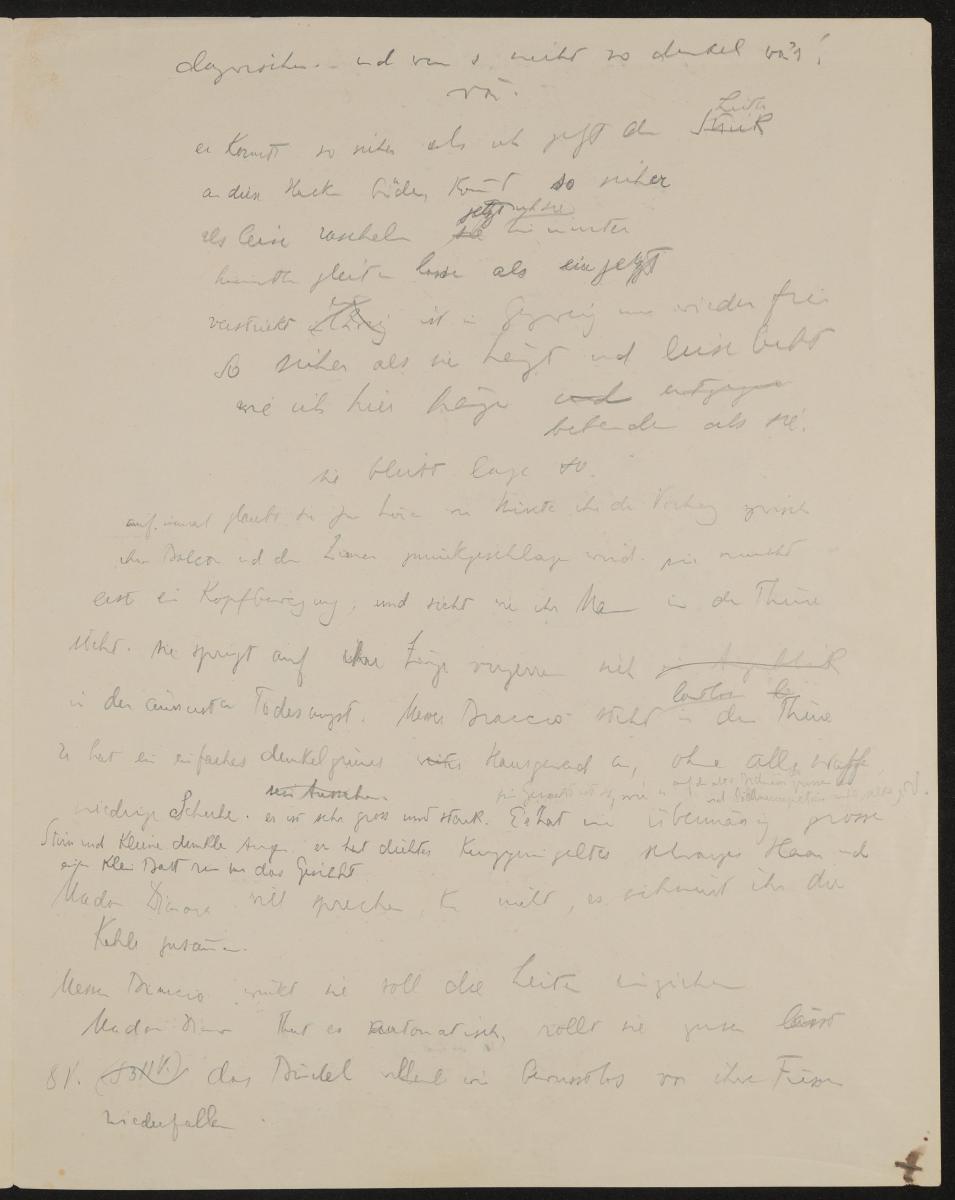 dazwischen.. und wenn s nicht so dunkel wär!
wär.
Leiter
er kommt so sicher als ich jetzt den Strick
an diesen Haken binde, kommt so sicher
jetzt ich sie
als leise raschelnd sie hinunter
hinunter gleiten lasse als sie jetzt
verstrickt ist im Gezweig nun wieder frei
So sicher als sie hängt und leise bebt
wie ich hier hänge und entgegen
bebender als sie.
sie bleibt lange so.
auf einmal glaubt sie zu hören wie hinter ihr der Vorhang zwischen
ihrem Balcon und dem Zimmer zurückgeschlagen wird. sie macht
erst ein Kopfbewegung, und sieht wie ihr Mann in der Thüre
steht. sie springt auf ihre Züge verzerren sich im Augenblick
lautlos
in der äussersten Todesangst. Messer Braccio steht in der Thüre
er hat ein einfaches dunkelgrünes Hausgewand an, ohne alle Waffe
sein Aussehen.
niedrige Schuhe. er ist sehr gross und stark. Er hat eine übermässig grosse
Stirn und kleine dunkle Augen. er hat dichtes kurzgeringeltes schwarzes Haar und
einen kleinen Bart rund um das Gesicht.
Madonna Dianora will sprechen, kann nicht, es schnürt ihr die
Kehle zusammen.
Messer Braccio winkt sie soll die Leiter einziehen
Madonna Dianora thut es automatisch, rollt sie zusammen lässt
8 V. das Bündel wie bewusstlos vor ihre Füsse
niederfallen